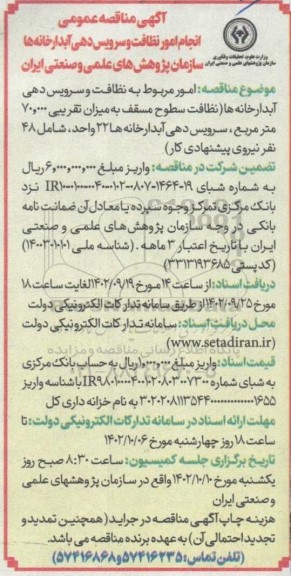 آگهی مناقصه عمومی
انجام امور نظافت و سرویس دهی آبدارخانه ها
سازمان پژوهش های علمی و صنعتی ایران
وزارت علوم، تحقیقات و فناوری
سازمان پژوهشهای علمی و صنعتی ایران
موضوع مناقصه: امور مربوط به نظافت و سرویس دهی
آبدارخانه ها (نظافت سطوح مسقف به میزان تقریبی ۷۰,۰۰۰
متر مربع، سرویس دهی آبدارخانه ها ۲۲ واحد، شامل ۴۸
نفر نیروی پیشنهادی کار)
تضمین شرکت در مناقصه: واریز مبلغ ۶,۰۰۰,۰۰۰,۰۰۰ ریال
به شماره شبای نزد
بانک مرکزی تمرکز وجوه سپرده یا معادل آن ضمانت نامه
بانکی در وجه سازمان پژوهش های علمی و صنعتی
ایران با تاریخ اعتبار ۳ ماهه. (شناسه ملی ۱۴۰۰۳۰۱۰۱۰)
(کدپستی ۳۳۱۳۱۹۳۶۸۵)
دریافت اسناد: از ساعت ۱۴ مورخ ۱۴۰۲/۰۹/۱۹ لغایت ساعت ۱۸
مورخ ۱۴۰۲/۰۹/۲۵ از طریق سامانه تدارکات الکترونیکی دولت
محل دریافت اسناد: سامانه تدارکات الکترونیکی دولت
(www.setadiran.ir)
قیمت اسناد: واریز مبلغ ۱,۰۰۰,۰۰۰ ریال به حساب بانک مرکزی
به شبای شماره با شناسه واریز
به نام خزانه داری کل
مهلت ارائه اسناد در سامانه تدارکات الکترونیکی دولت: تا
ساعت ۱۸ روز چهارشنبه مورخ ۱۴۰۲/۱۰/۰۶
تاریخ برگزاری جلسه کمیسیون: ساعت ۸:۳۰ صبح روز
یکشنبه مورخ ۱۴۰۲/۱۰/۱۰ واقع در سازمان پژوهشهای علمی
و صنعتی ایران
هزینه چاپ آگهی مناقصه در جراید (همچنین تمدید و
تجدید احتمالی آن) به عهده برنده مناقصه می باشد.
(تلفن تماس: ۵۷۴۱۶۲۳۵ و ۵۷۴۱۶۸۶۸)